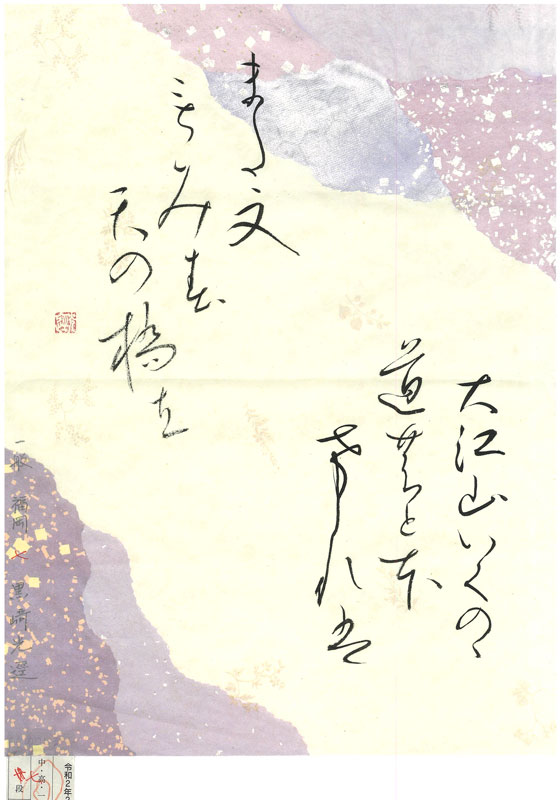 大江山いくのゝ
道のと本
けれは
また文
もみ春
天の橋立
一般 福岡 七 黒崎光
令和2年
中・高・一
段